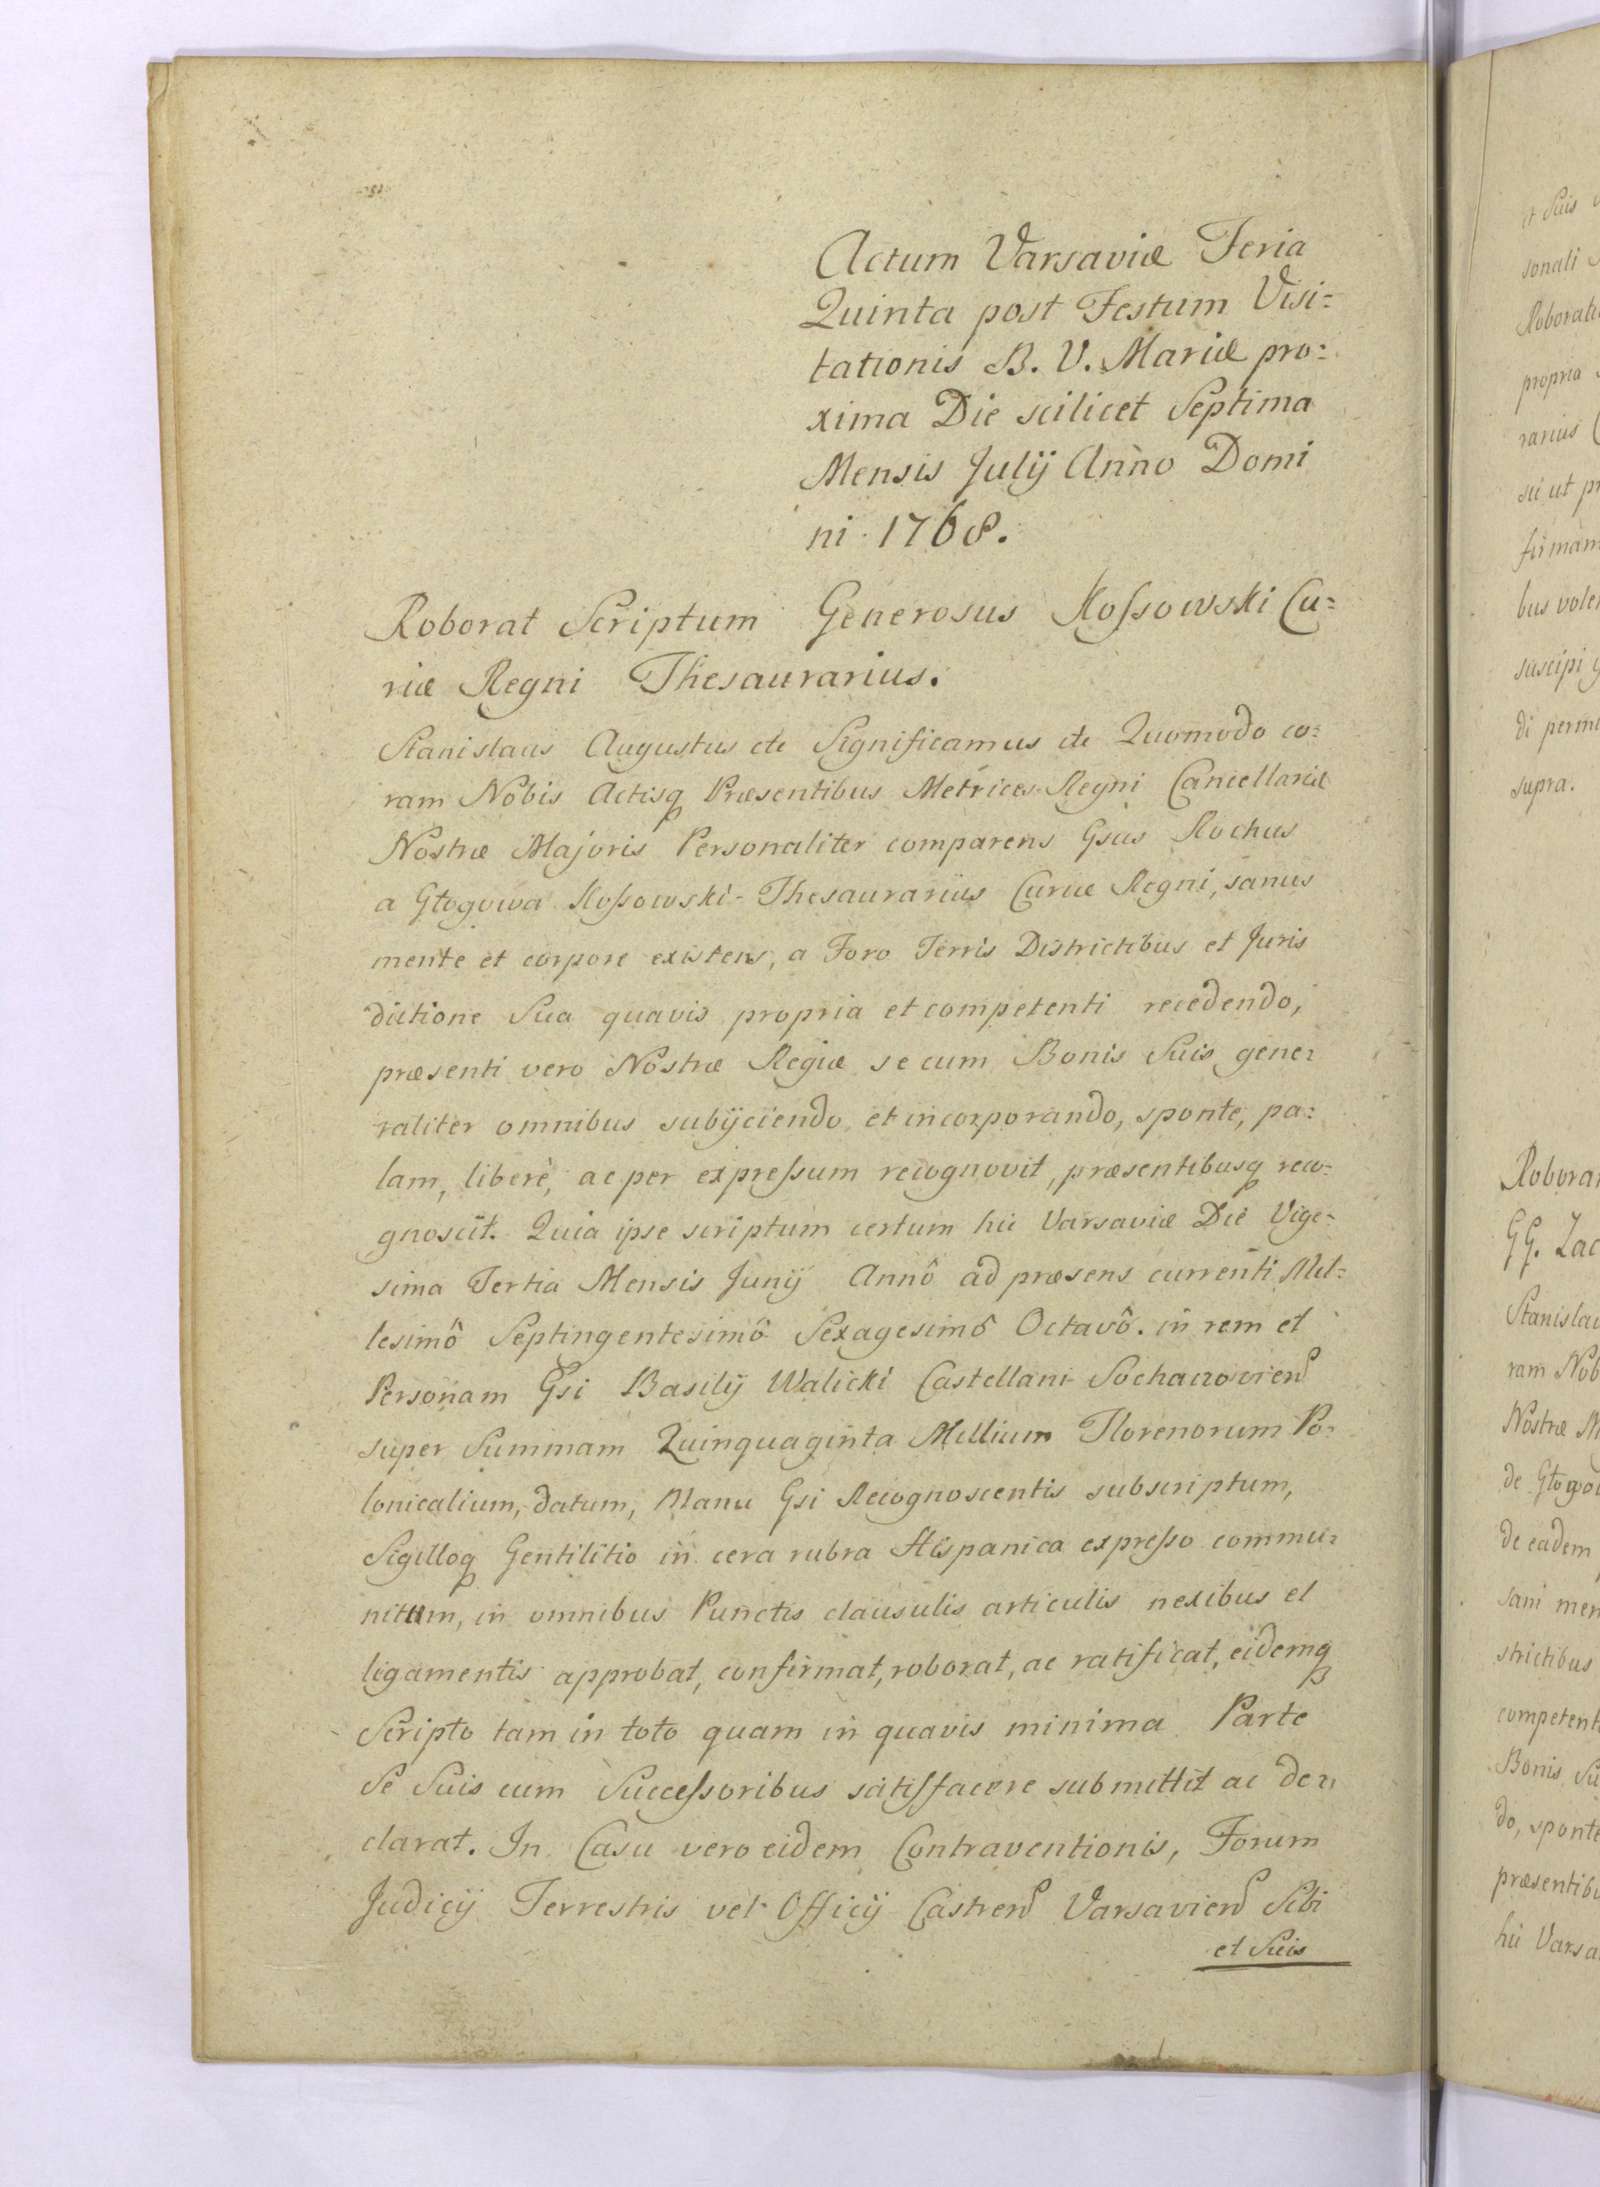 Actum Varsaviæ Feria
Quinta post Festum Visi=
tationis B. V. Mariæ pro=
xima Die scilicet Septima
Mensis Julij Anno Domi
ni 1768.
Roborat Scriptum Generosus Kossowski Cu=
riæ Regni Thesaurarius.
Stanislaus Augustus etc Significamus etc Quomodo co=
ram Nobis Actisq Præsentibus Metrices Regni Cancellariæ
Nostræ Majoris Personaliter comparens Gsus Rochus
a Głogowa Kossowski Thesaurarius Curiæ Regni, sanus
mente et corpore existens, a Foro Terris Districtibus et Juris
dictione Sua quavis propria et competenti recedendo,
præsenti vero Nostræ Regiæ se cum Bonis Suis gene=
raliter omnibus subijciendo et incorporando, sponte, pa=
lam, liberè, ac per expressum recognovit, præsentibusq reco=
gnoscit. Quia ipse scriptum certum hic Varsaviæ Die Vige=
sima Tertia Mensis Junij Annô ad præsens currenti Mil=
lesimô Septingentesimô Sexagesimô Octavô. in rem et
Personam Gsi Basilij Walicki Castellani Sochaczovien
super Summam Quinquaginta Millium Florenorum Po=
lonicalium, datum, Manu Gsi Recognoscentis subscriptum,
Sigilloq Gentilitio in cera rubra Hispanica expresso commu=
nitum, in omnibus Punctis clausulis articulis nexibus et
ligamentis approbat, confirmat, roborat, ac ratificat, eidemq
Scripto tam in toto quam in quavis minima Parte
Se Suis cum Successoribus satisfacere submittit ac de=
clarat. In Casu vero eidem Contraventionis, Forum
Judicij Terrestris vel Officij Castren Varsavien Sibi
et Suis
et Suis
sonali
propria
rarius
sci ut
supra.
GG.
ram Nob
Nostræ
de eadem
sani men
strictibus
Bonis
do, sponte
hic Varsa